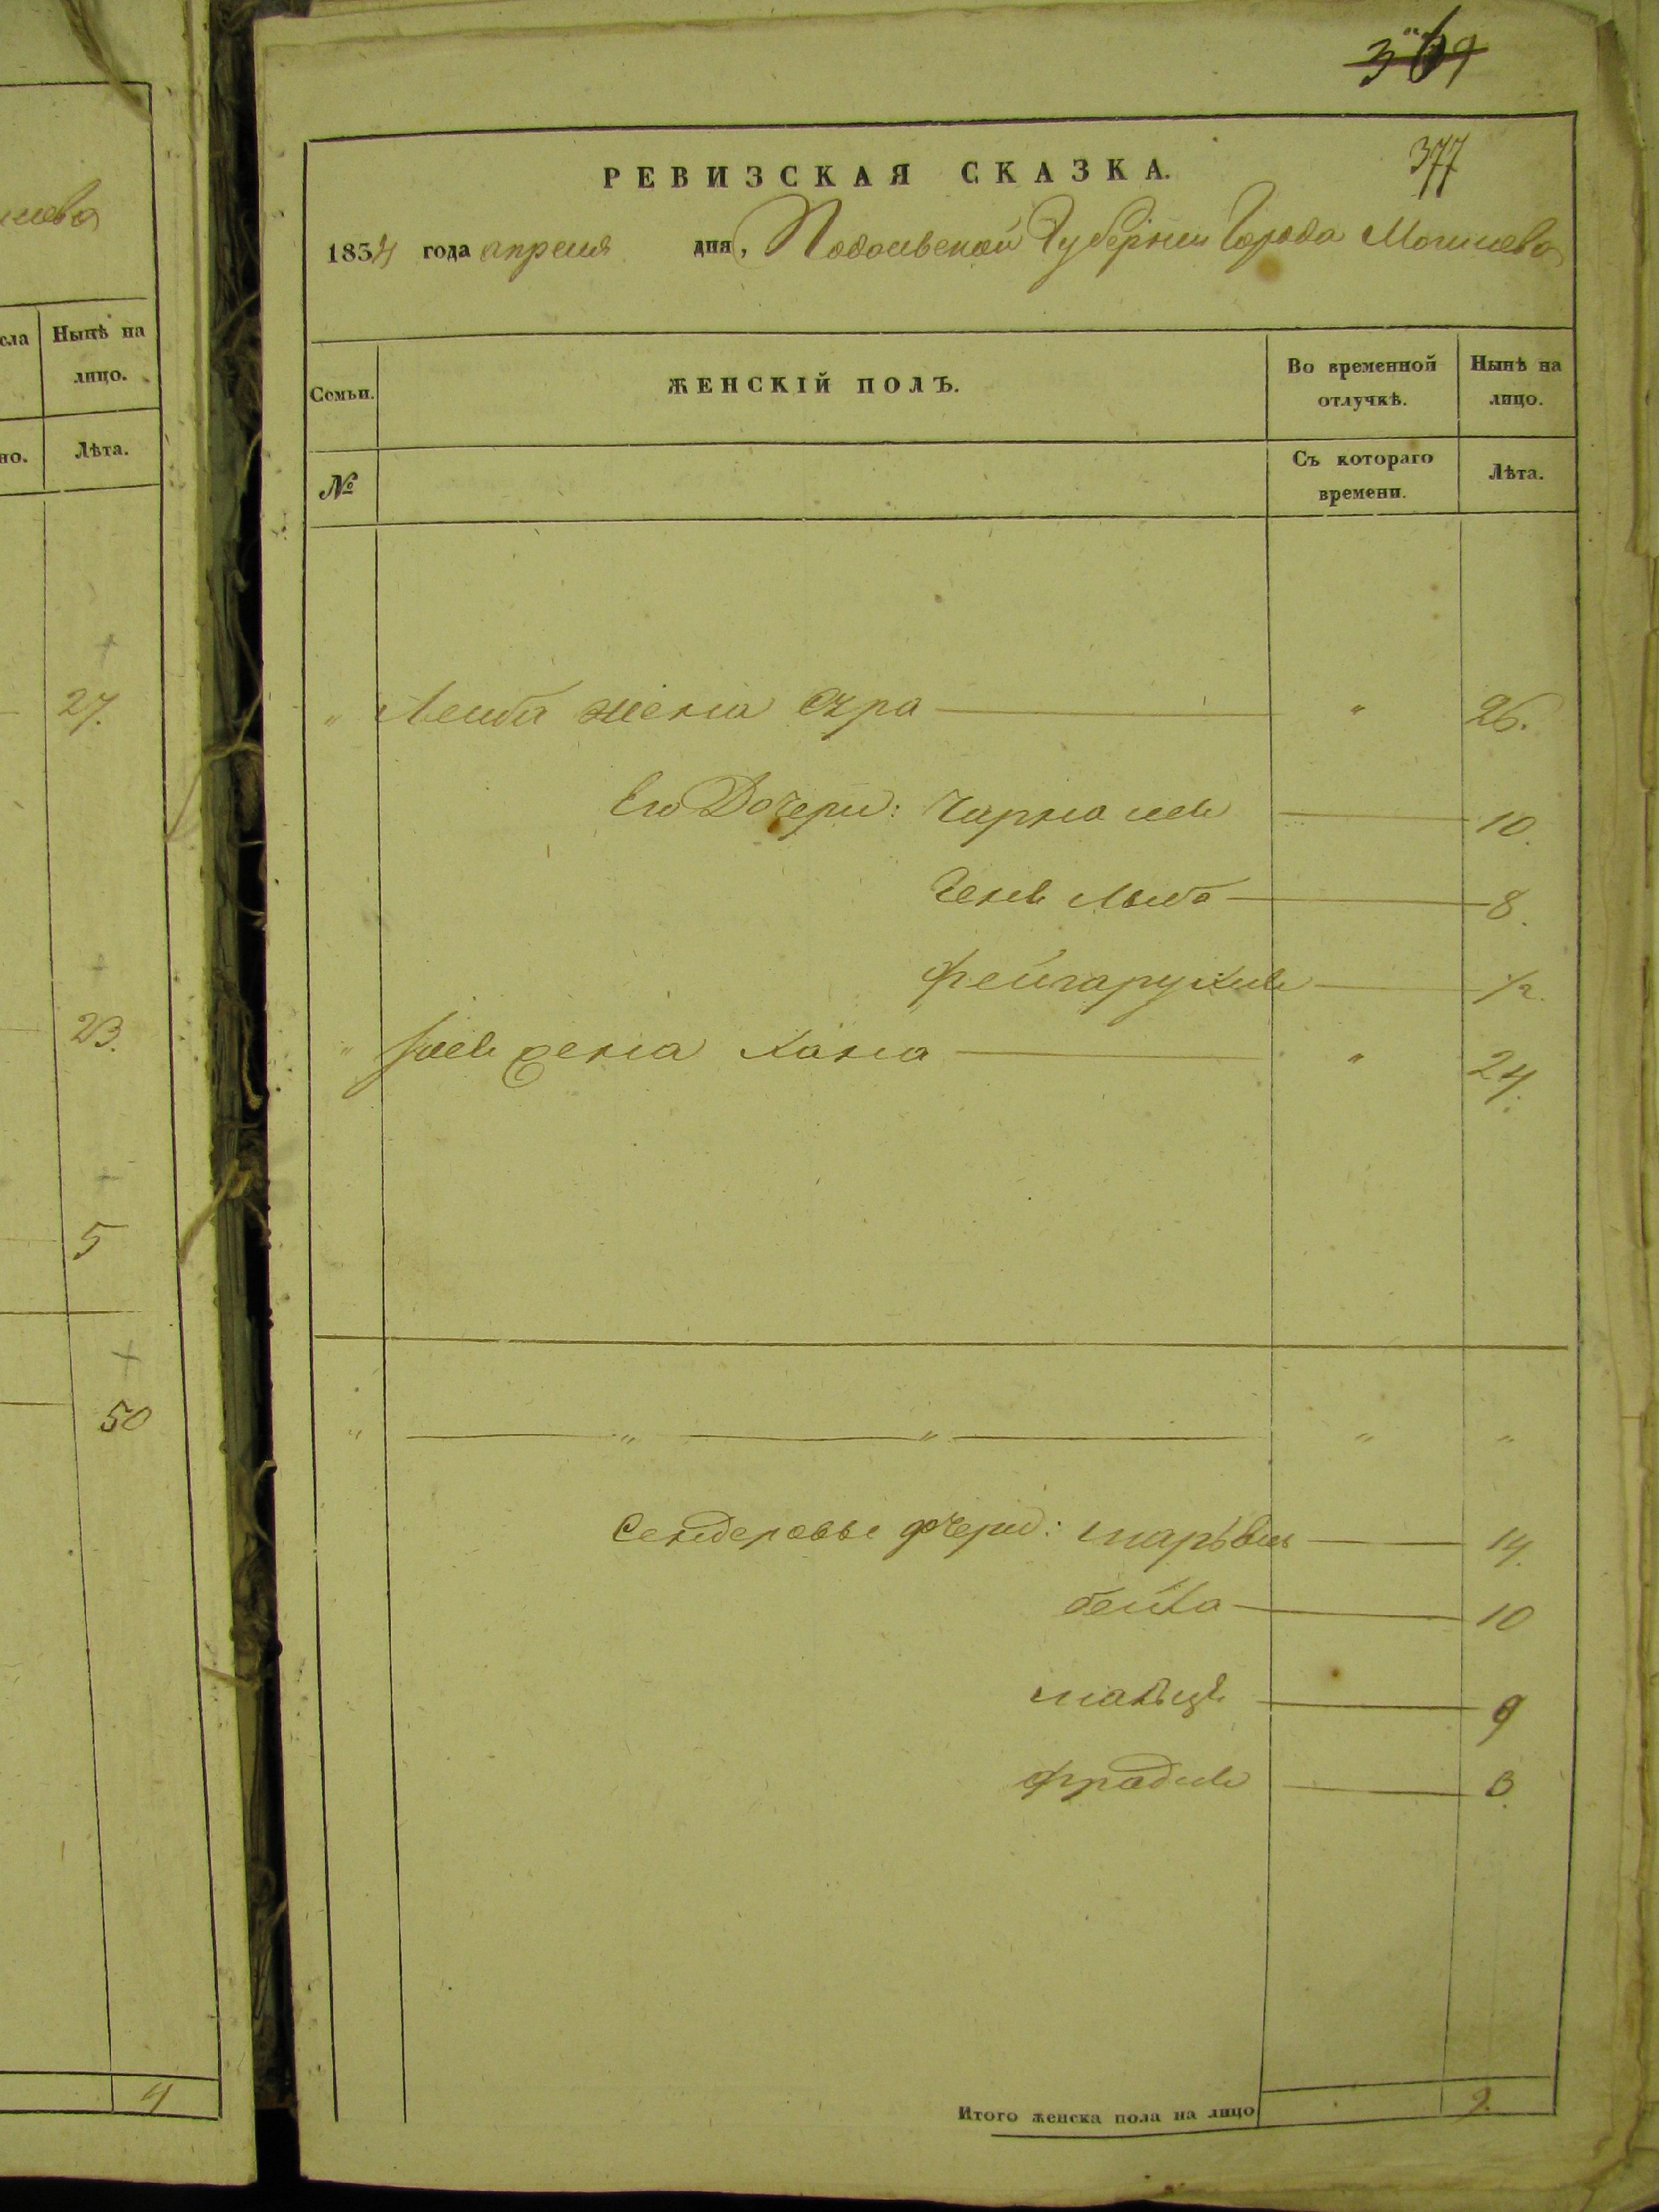 лева
сла
Нынѣ на
лицо.
но.
Лѣта.
27.
23.
5
50
4
369
377
РЕВИЗСКАЯ СКАЗКА.
1834 года апреля дня, Подольской Губерніи Города Могилева
Семьи.
ЖЕНСКІЙ ПОЛЪ.
Во временной отлучкѣ.
Нынѣ на лицо.
№
Съ котораго времени.
Лѣта.
" Лейба жена Сура " 26.
Его Дочери: Чарна 10.
8.
1/2.
жена Хана " 24.
" " " " "
Сендеровы дочери: 14.
бейла 10
9
фрадля 3.
Итого женска пола на лицо 9.